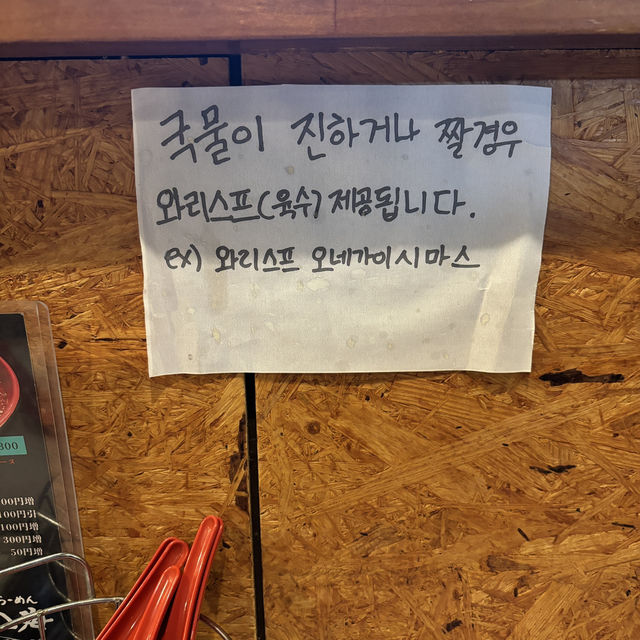 국물이 진하거나 짤경우
와리스프(육수) 제공됩니다.
ex) 와리스프 오네가이시마스
800
00円増
100円引
100円増
300円増
50円増
らーめん